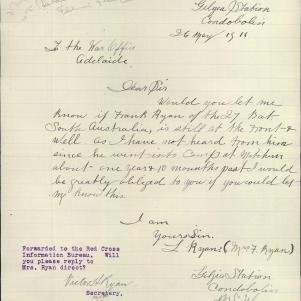 Gilgea Station
Condobolin
26 May 1918
To the War Office
Adelaide
Dear Sir
Would you let me
know if Frank Ryan of the 27 Bat
South Australia, is still at the Front &
well as I have not heard from him
since he went into Camp at Mitcham
about one year & 10 months past I would
be greatly obliged to you if you could let
me know this
I am
Yours Sin.
L Ryans (Mrs F. Ryan)
Station
Condobolin
N.S.W.
Forwarded to the Red Cross
Information Bureau. Will
you please reply to
Mrs. Ryan direct?
Victor H Ryan
Secretary,